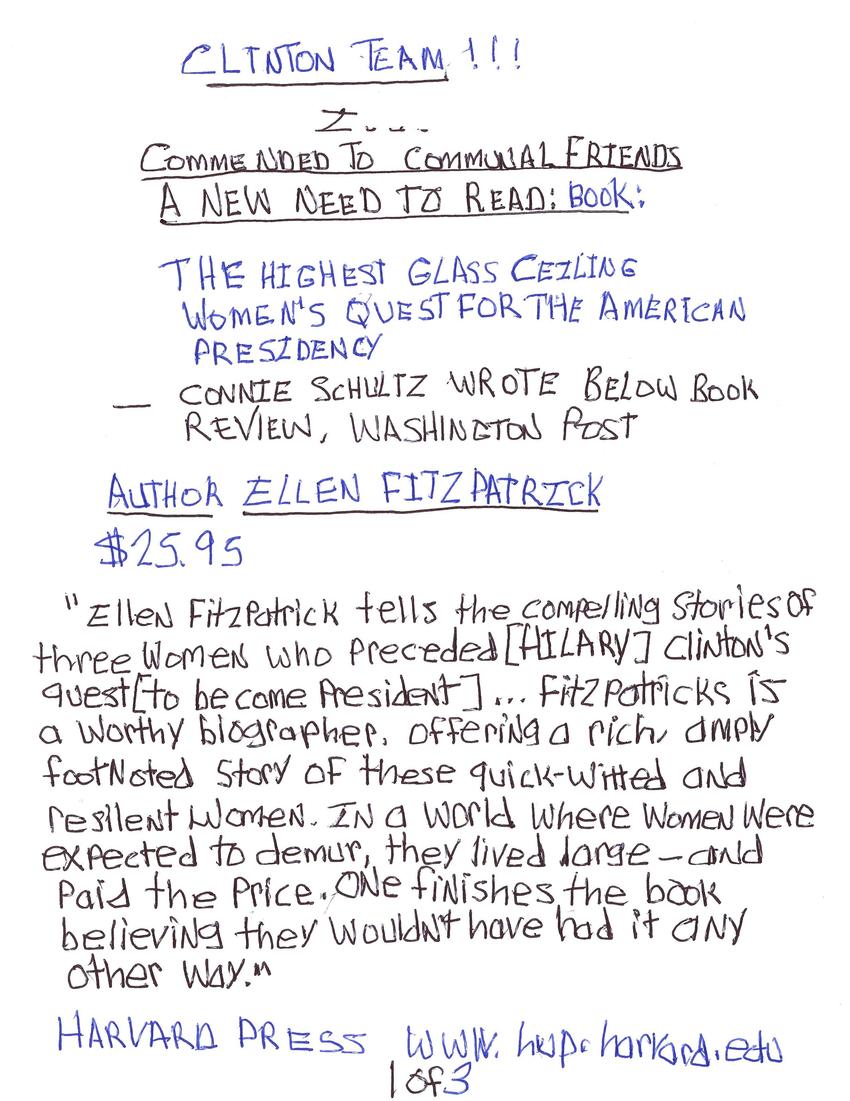 CLINTON TEAM!!!
I....
COMMENDED TO COMMUNAL FRIENDS
A NEW NEED TO READ: BOOK:
THE HIGHEST GLASS CEILING
WOMEN'S QUEST FOR THE AMERICAN
PRESIDENCY
— CONNIE SCHULTZ WROTE BELOW BOOK
REVIEW, WASHINGTON POST
AUTHOR ELLEN FITZPATRICK
$25.95
"Ellen FitzPatrick tells the compelling Stories of
three Women who Preceded [HILARY] Clinton's
quest [to become President] ... FitzPatricks is
a worthy biographer, offering a rich, amply
footNoted Story of these quick-witted and
resilent women. In a world where women were
expected to demur, they lived large — and
Paid the Price. One finishes the book
believing they wouldn't have had it any
other way."
HARVARD PRESS www.hup.harvard.edu
1 of 3